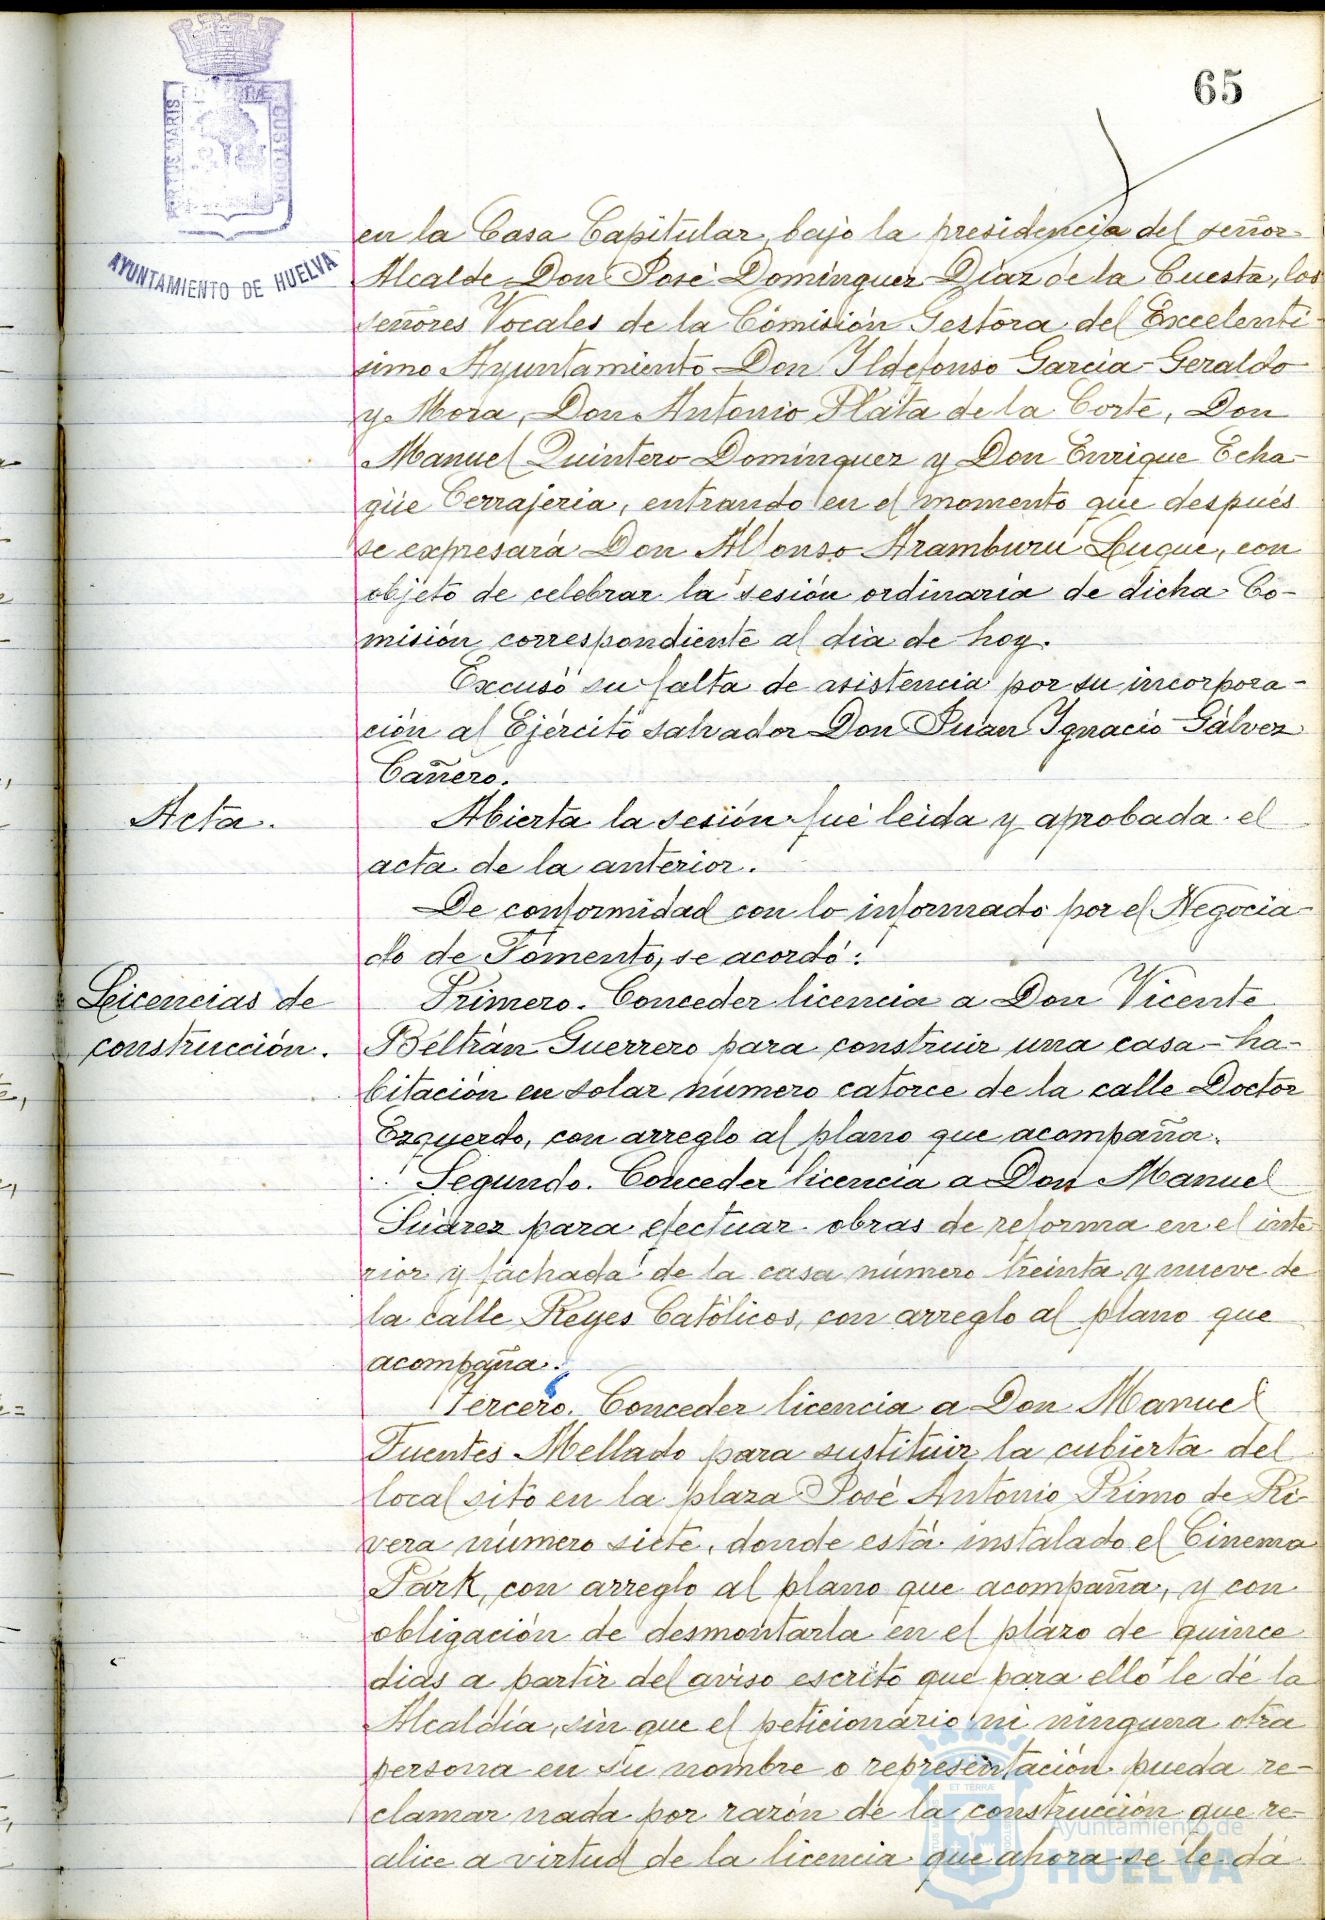 65
PORTUS MARIS ET TERRÆ CUSTODIA
AYUNTAMIENTO DE HUELVA
en la Casa Capitular, bajo la presidencia del señor
Alcalde Don José Domínguez Díaz de la Cuesta, los
señores Vocales de la Comisión Gestora del Excelentí-
simo Ayuntamiento Don Ildefonso García-Geraldo
y Mora, Don Antonio Plata de la Corte, Don
Manuel Quintero Domínguez y Don Enrique Echa-
güe Cerrajeria, entrando en el momento que después
se expresará Don Alfonso Aramburu Luque, con
objeto de celebrar la sesión ordinaria de dicha Co-
misión correspondiente al dia de hoy.
Excusó su falta de asistencia por su incorpora-
ción al Ejército salvador Don Juan Ignacio Gálvez
Cañero.
Acta.
Abierta la sesión fué leida y aprobada el
acta de la anterior.
De conformidad con lo informado por el Negocia-
do de Fomento, se acordó:
Licencias de
construcción.
Primero. Conceder licencia a Don Vicente
Beltrán Guerrero para construir una casa-ha-
bitación en solar número catorce de la calle Doctor
Ezquerdo, con arreglo al plano que acompaña.
Segundo. Conceder licencia a Don Manuel
Suárez para efectuar obras de reforma en el inte-
rior y fachada de la casa número treinta y nueve de
la calle Reyes Católicos, con arreglo al plano que
acompaña.
Tercero. Conceder licencia a Don Manuel
Fuentes Mellado para sustituir la cubierta del
local sito en la plaza José Antonio Primo de Ri-
vera número siete, donde está instalado el Cinema
Park, con arreglo al plano que acompaña, y con
obligación de desmontarla en el plazo de quince
dias a partir del aviso escrito que para ello le dé la
Alcaldía, sin que el peticionario ni ninguna otra
persona en su nombre o representación pueda re-
clamar nada por razón de la construcción que re-
alice a virtud de la licencia que ahora se le dá
Ayuntamiento de
HUELVA